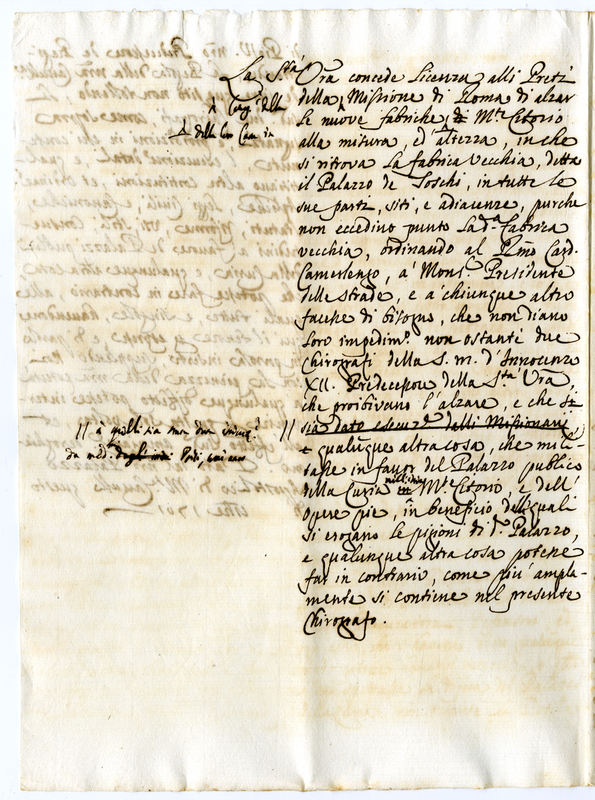 La S.tà V'ra concede licenza alli Preti
della ^ Missione di Roma di alzar
^ Cong.e della
le nuove fabriche, di M.te Citorio
^ della loro Casa in
alla misura, ed'altezza, in che
si ritrova la fabrica vecchia, detta
il Palazzo de Toschi, in tutte le
sue parti, siti, e adiacenze, purche
non eccedino punto la d.a fabrica
vecchia, ordinando al Em̃o Card.
Camerlengo, a' Mons.r Presidente
delle strade, e a' chiunque altro
facesse di bisogno, che non diano
loro impedim.o non ostante due
Chirografi della S. m. d'Innocenzo
XII. Predecessore della S.tà V'ra,
che proibivano l'alzare, e che si
sia dato esecuz.e dalli Missionarij
// à quelli sia
//
da med.i Preti
e qualunque altra cosa, che mili-
tasse in favor del Palazzo publico
della Curia in M.te Citorio, e dell'
opere pie, in beneficio delle quali
si erogano le pigioni di d.o Palazzo,
e qualunque altra cosa potesse
far in contrario, come più ampla-
mente si contiene nel presente
Chirografo.